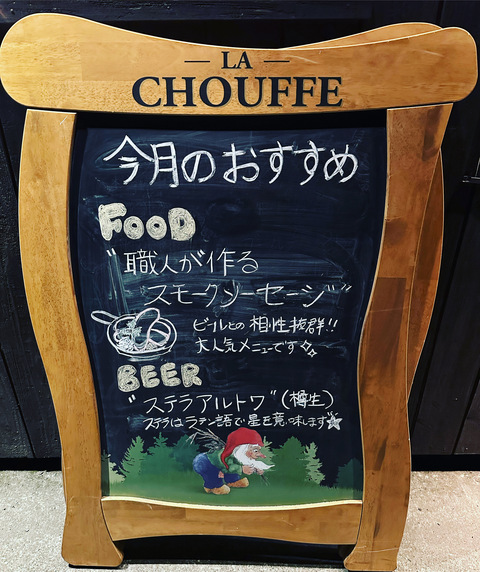 LA
CHOUFFE
今月のおすすめ
FOOD
"職人が作る
スモークソーセージ"
ビールとの相性抜群!!
大人気メニューです
BEER
"ステラアルトワ"(樽生)
ステラはラテン語で星を意味します